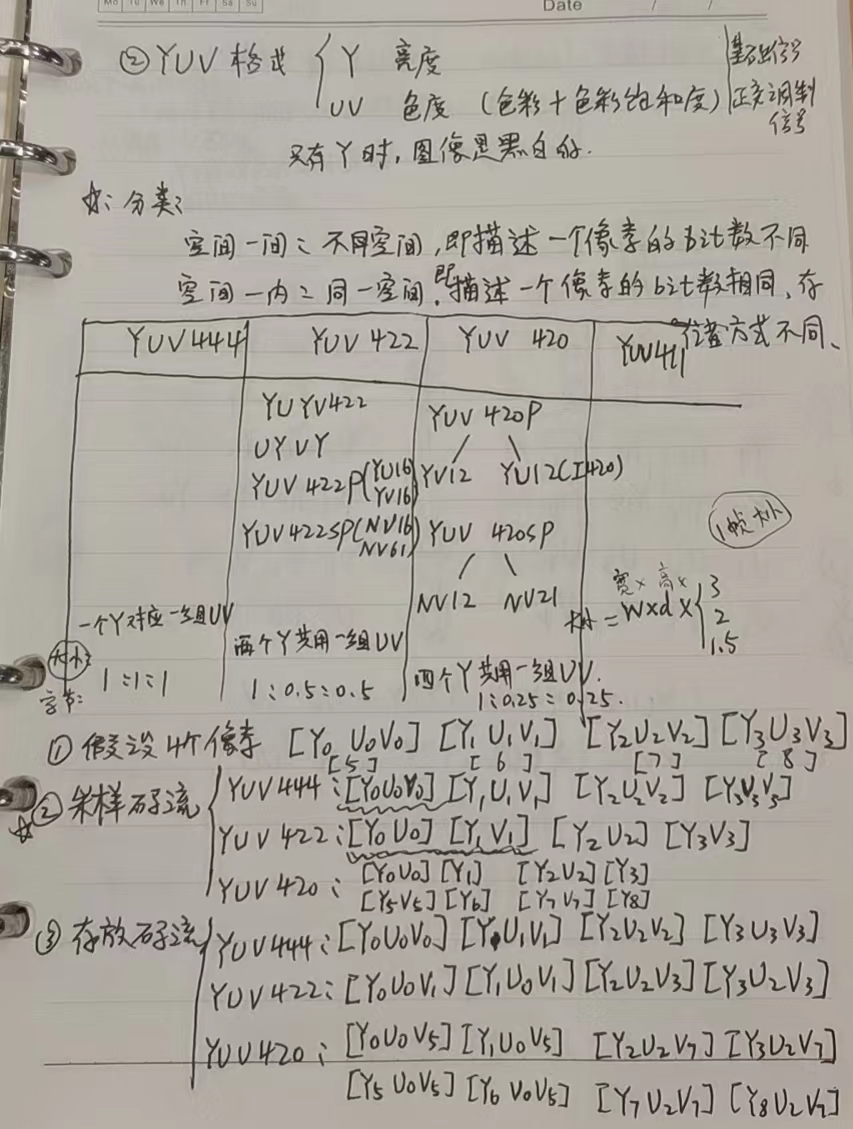 Mo Tu We Th Fr Sa Su
Date / /
② YUV 格式 { Y 亮度
UV 色度 (色彩+色彩饱和度)
基础信号
正交调制
信号
只有Y时,图像是黑白的.
☆: 分类:
空间-间: 不同空间,即描述一个像素的bit数不同
空间-内: 同一空间,即描述一个像素的bit数相同、存
储方式不同、
YUV444 YUV422 YUV 420 YUV411
YUYV422
UYVY
YUV422P(YU16 YV16)
YUV422SP(NV16 NV61)
YUV 420P
YV12 YU12(I420)
YUV 420SP
NV12 NV21
1帧大小
宽× 高×
大小 = W×d× { 3
2
1.5
一个Y对应一组UV
两个Y共用一组UV
四个Y共用一组UV.
大小:
字节: 1:1:1
1:0.5:0.5
1:0.25:0.25.
① 假设4个像素 [Y0 U0V0] [Y1 U1V1] [Y2U2V2] [Y3U3V3]
[5] [6] [7] [8]
☆② 采样码流 { YUV444: [Y0U0V0] [Y1U1V1] [Y2U2V2] [Y3V3V3]
YUV422: [Y0U0] [Y1V1] [Y2U2] [Y3V3]
YUV420: [Y0U0] [Y1] [Y2U2] [Y3]
[Y5V5] [Y6] [Y7V7] [Y8]
③ 存放码流 { YUV444: [Y0U0V0] [Y1U1V1] [Y2U2V2] [Y3U3V3]
YUV422: [Y0U0V1] [Y1U0V1] [Y2U2V3] [Y3U2V3]
YUV420: [Y0U0V5] [Y1U0V5] [Y2U2V7] [Y3U2V7]
[Y5U0V5] [Y6V0V5] [Y7U2V7] [Y8U2V7]